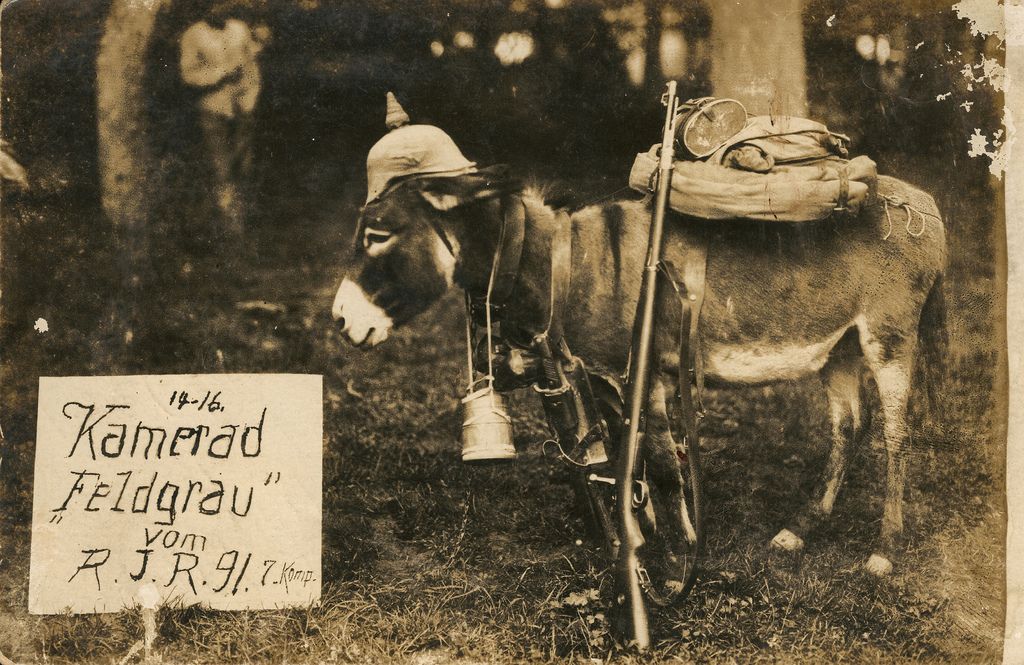 14-16.
Kamerad
„Feldgrau"
vom
R. J. R. 91. 7. Komp.